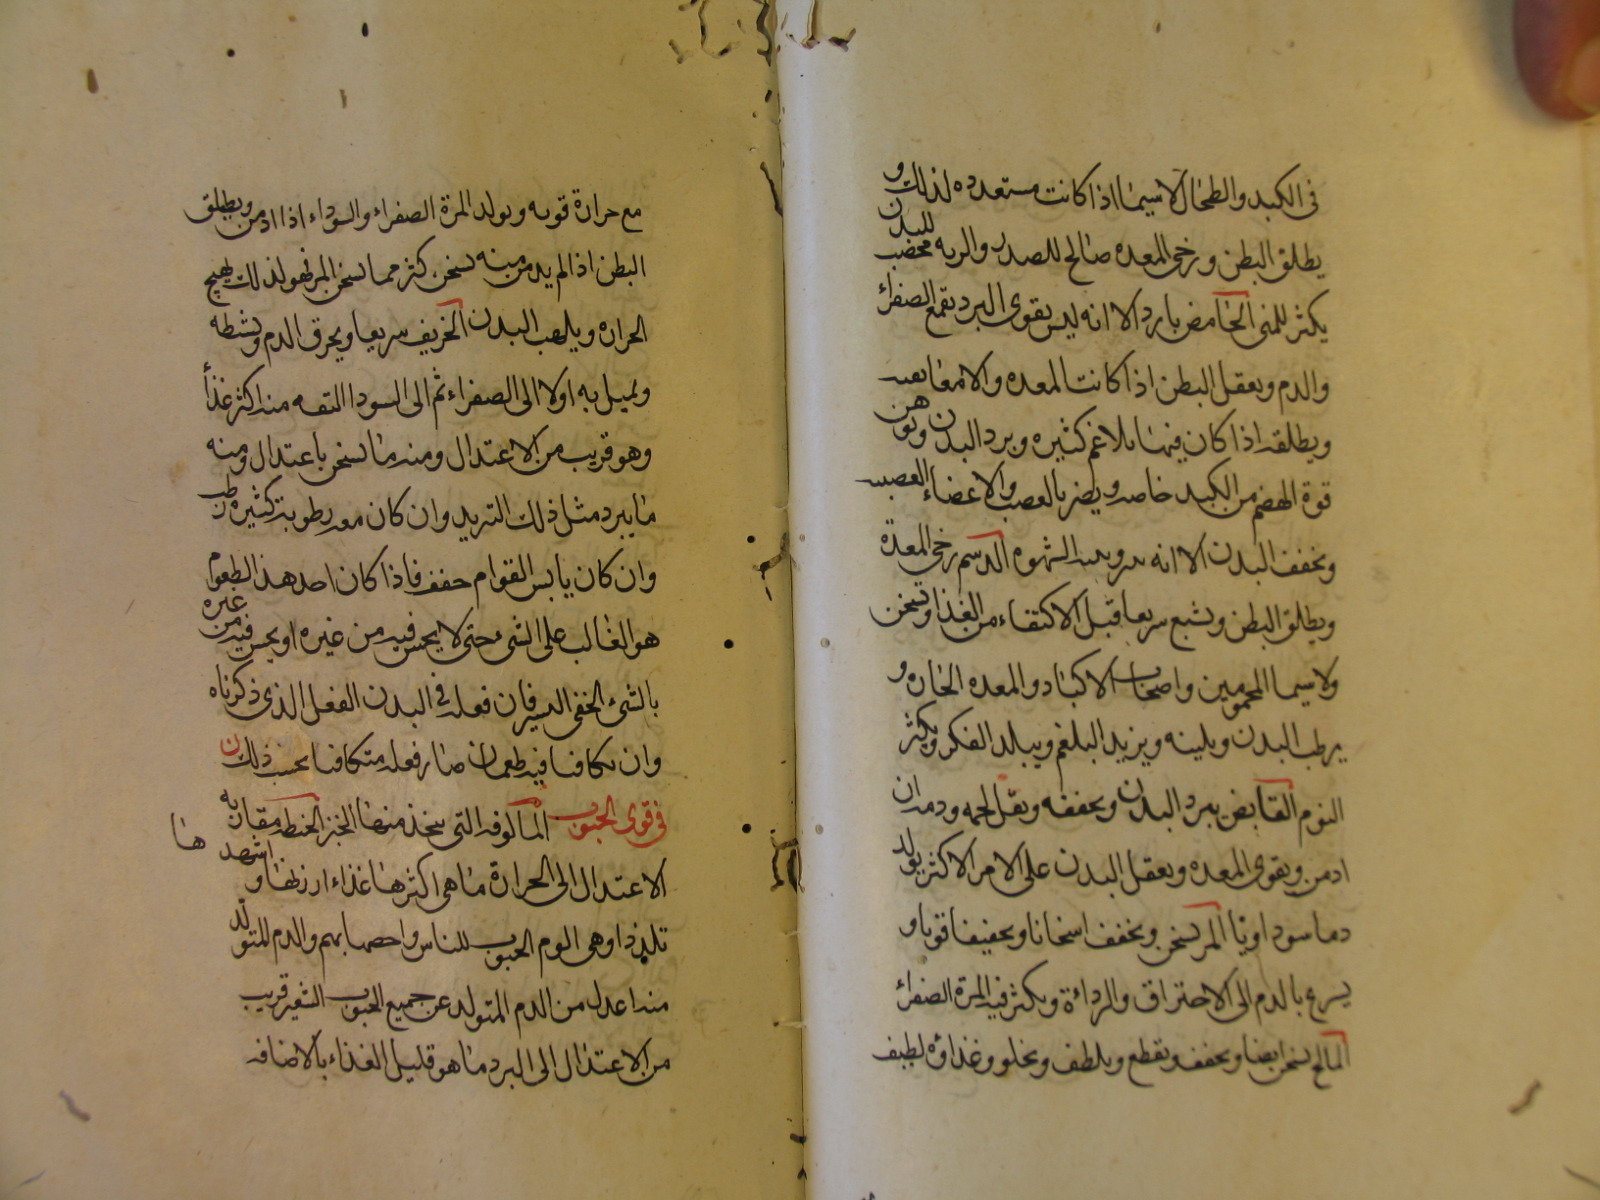 فى الكبد والطحال لاسيما اذا كانت مستعده لذلك و
يطلق البطن ويرخى المعده صالح للصدر والريه مخصب للبدن
يكثر للمنى الحامض بارد الا انه ليس يقوى البرد يقمع الصفراء
والدم ويعقل البطن اذا كانت المعده والامعا نقيه
ويطلقه اذا كان فيها بلاغم كثيره ويبرد البدن ويوهن
قوة الهضم من الكبد خاصه ويضر بالعصب والاعضاء العصبيه
ويخفف البدن الا انه الشهوه الدسم يرخى المعدة
ويطلق البطن ويشبع سريعا قبل الاكتفاء من الغذا ويسخن
ولا سيما المحمومين واصحاب الاكباد والمعده الحاره و
يرطب البدن ويلينه ويزيد البلغم ويبلد الفكر ويكثر
النوم القابض يبرد البدن ويخففه ويقل لحمه ودمه ان
ادمن ويقوى المعده ويعقل البدن على الامر الاكثر يولد
دما سوداويا المر يسخن ويخفف اسخانا وتخفيفا قويا و
يسرع بالدم الى الاحتراق والرداءة ويكثر فيه المرة الصفراء
المالح يسخن ايضا ويخفف ويقطع ويلطف ويجلو وغذاؤه لطيف
مع حرارة قويه ويولد المرة الصفراء والسوداء اذا ادمن ويطلق
البطن اذا لم يدمن منه يسخن كثر مما يسخن المر فهو لذلك يهيج
الحراره ويلهب البدن الحريف سريعا ويحرق الدم ويشطه
ويميل به اولا الى الصفراء ثم الى السودا التفه منه اكثر غذأ
وهو قريب من الاعتدال ومنه ما يسخن باعتدال ومنه
ما يبرد مثل ذلك التبريد وان كان معه رطوبة كثيره رطب
وان كان يابس القوام خفف فاذا كان احد هذه الطعوم
هو الغالب على الشىء حتى لا يحس فيه من غيره او يحس فيه من غيره
بالشىء الخفى اليسير فان فعله فى البدن الفعل الذى ذكرناه
وان تكافا فيه طعمان صار فعله متكافيا بحسب ذلك ن
فى قوى الحبوب المالوفه التى يتخذ منها الخبز الحنطه مقاربه
الاعتدال الى الحرارة ما هى اكثرها غذاء ارزنها و اشهد ها
تلززا وهى الوم الحبوب للناس واخصها بهم والدم المتولد
منه اعدل من الدم المتولد عن جميع الحبوب الشعير قريب
من الاعتدال الى البرد ما هو قليل الغذاء بالاضافه